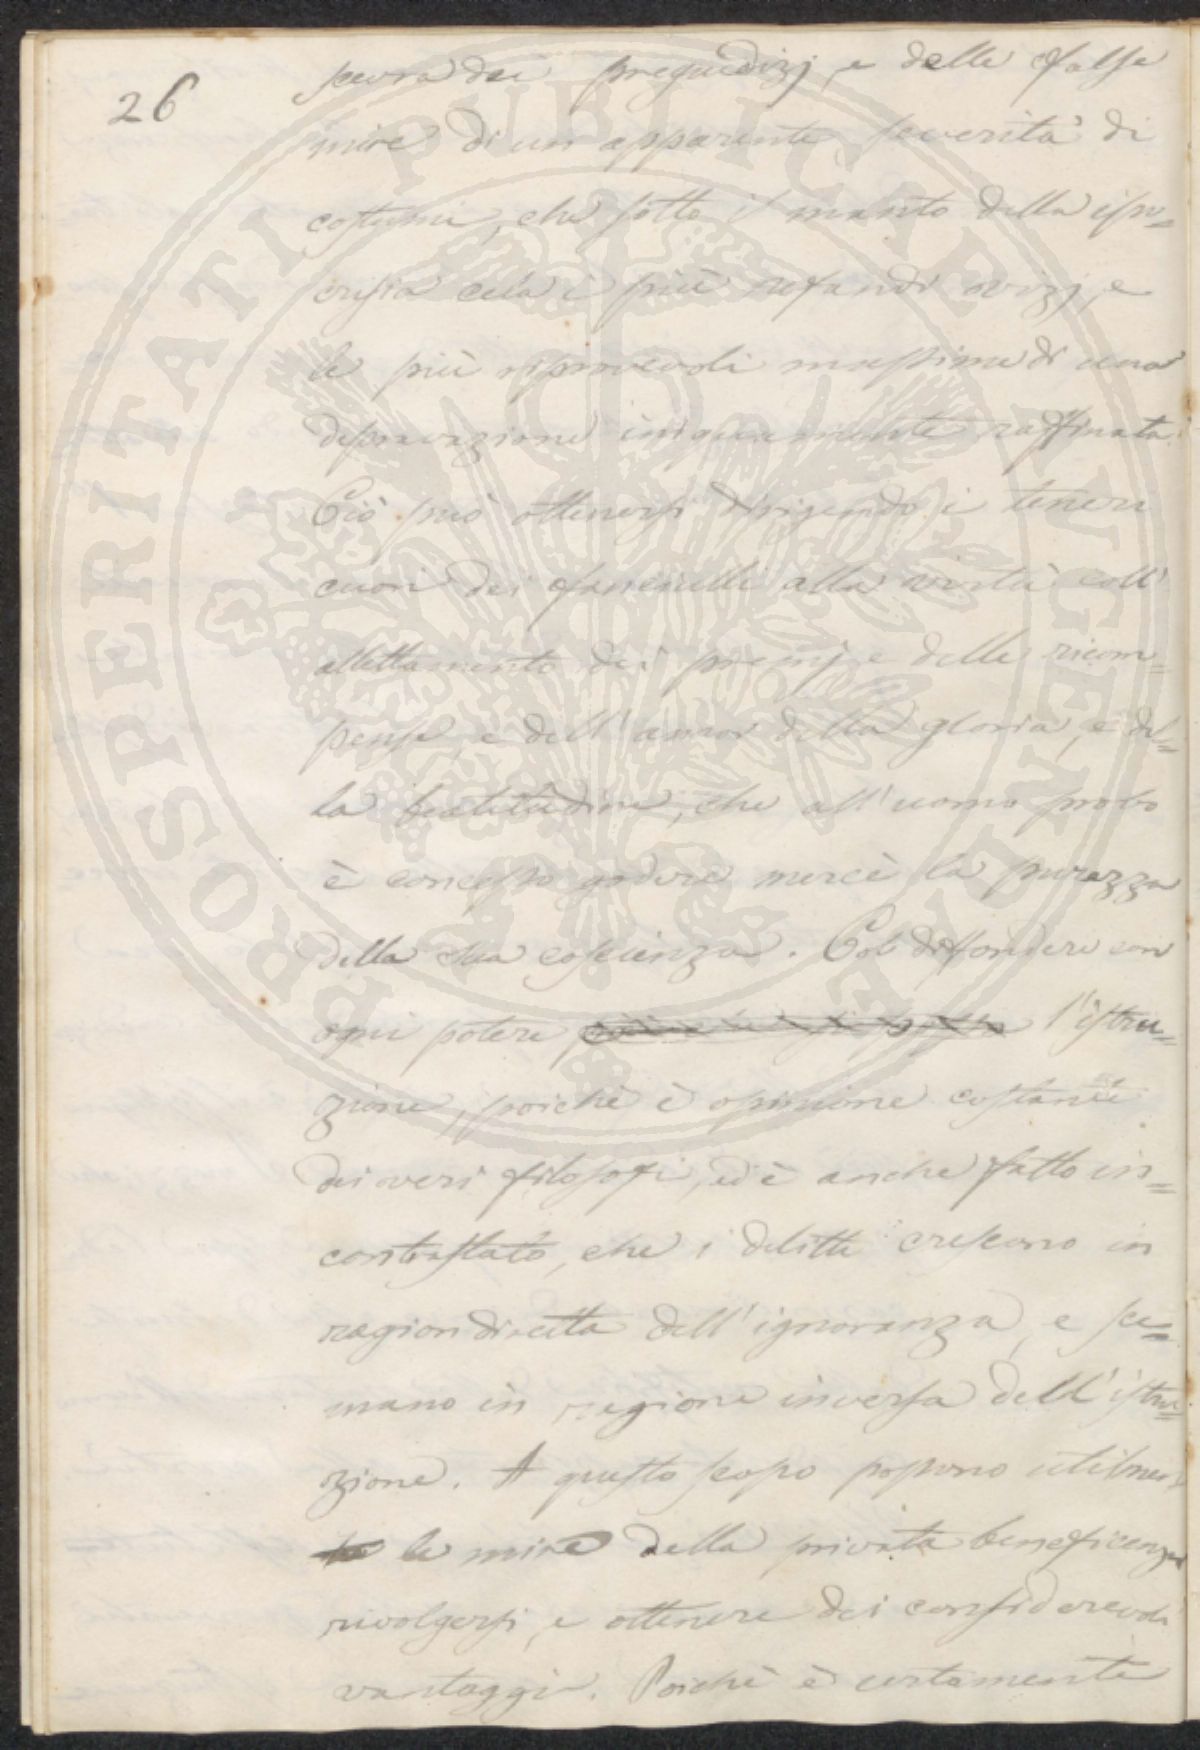 26
scevra dei pregiudizj, e delle false
mire di un apparente severità di
costumi, che sotto il manto della ipo=
crisia cela i più nefandi vizj, e
le più riprovevoli massime di una
depravazione iniquamente raffinata.
Ciò può ottenersi dirigendo i teneri
cuori dei fanciulli alla virtù coll'
allettamento dei premj e delle ricom=
pense, e dell'amor della gloria, e del=
la beatitudine, che all'uomo probo
è concesso godere mercè la purezza
della sua coscienza. Col diffondere con
ogni potere l'istru=
zione, poichè è opinione costante
dei veri filosofi, ed è anche fatto in=
contrastato, che i delitti crescono in
ragion diretta dell'ignoranza, e sce=
mano in ragione inversa dell'istru=
zione. A questo scopo possono utilmen=
te le mire della privata beneficenza
rivolgersi, e ottenere dei considerevoli
vantaggi. Poichè è certamente
PROSPERITATI PUBLICAE AUGENDAE